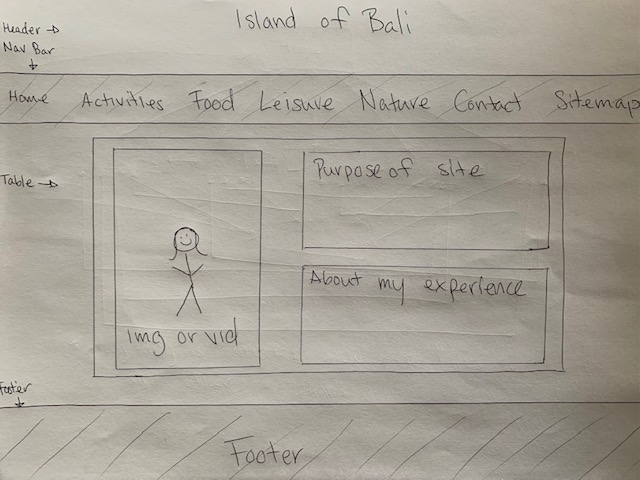 Island of Bali
Header →
Nav Bar
Home Activities Food Leisure Nature Contact Sitemap
Table →
Purpose of site
About my experience
img or vid
Footer
Footer